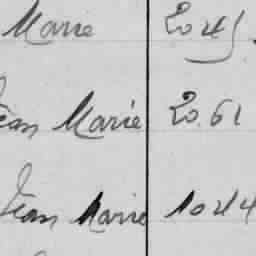 Marie 2045
Jean Marie 2061
Jean Marie 1044